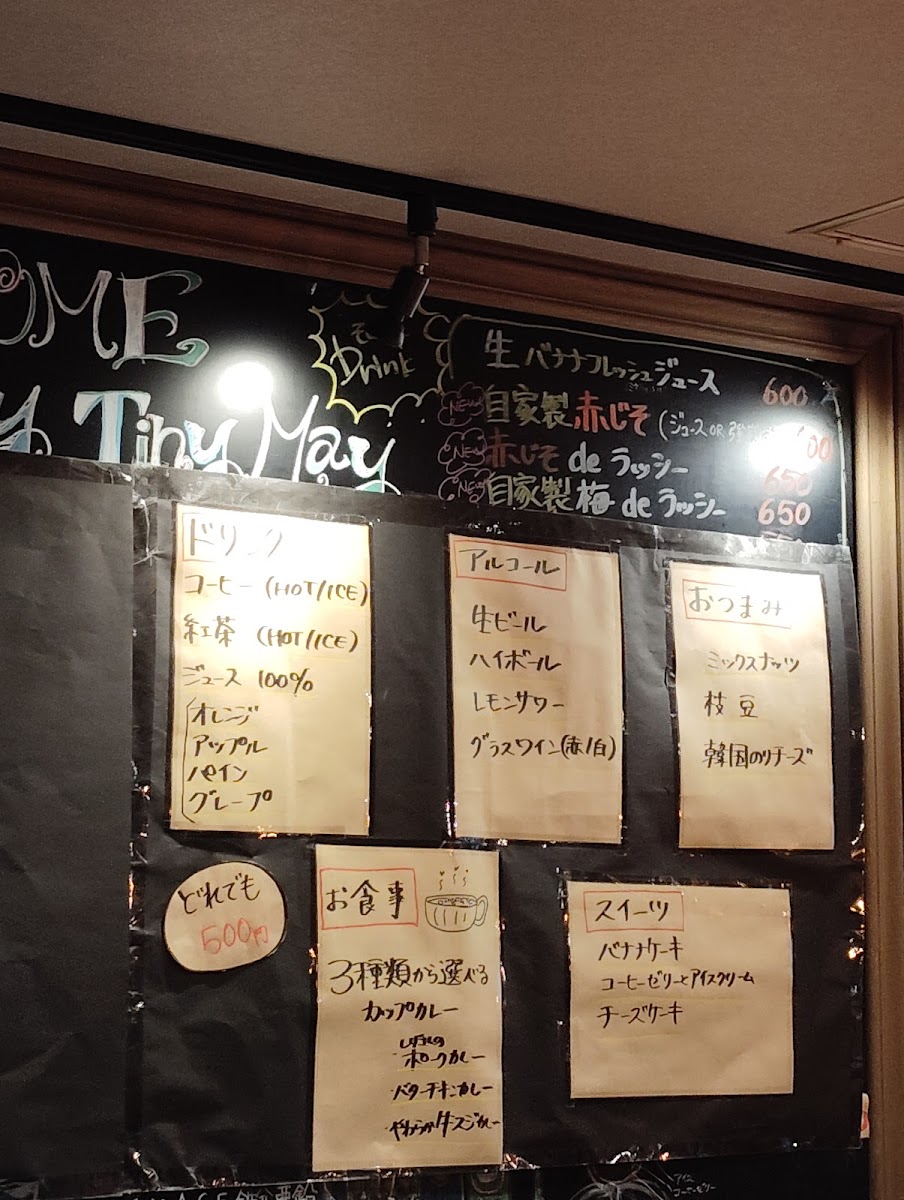 OME
Tiny May
Drink
生バナナフレッシュジュース 600
NEW 自家製赤じそ (ジュース OR
NEW 赤じそ de ラッシー 650
NEW 自家製梅 de ラッシー 650
ドリンク
コーヒー (HOT/ICE)
紅茶 (HOT/ICE)
ジュース 100%
オレンジ
アップル
パイン
グレープ
アルコール
生ビール
ハイボール
レモンサワー
グラスワイン(赤/白)
おつまみ
ミックスナッツ
枝豆
韓国のりチーズ
どれでも
500円
お食事
3種類から選べる
カップカレー
・ポークカレー
・バターチキンカレー
・やわらか牛スジカレー
スイーツ
バナナケーキ
コーヒーゼリーとアイスクリーム
チーズケーキ
アイス
コーヒーゼリー